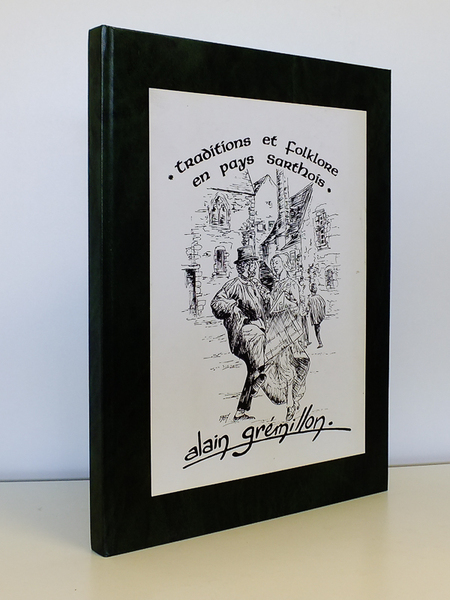 • traditions et folklore
en pays sarthois •
alain grémillon.